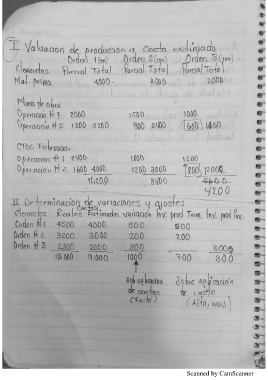 I Valuación de producción a costo estimado
Orden 1 (pm) Orden 2 (pm) Orden 3 (pm)
Elementos Parcial Total Parcial Total Parcial Total
Mat. prima 4000 3000 2000
Mano de obra
Operación # 1 2000 1500 1000
Operación # 2 1200 3200 900 2400 600 1600
CTOS Fabricación
operación # 1 2400 1800 1200
Operación # 2 1600 4000 1200 3000 800 2000
11.200 8400 5600
4200
II Determinación de variaciones y ajustes
Costos
Elementos Reales Estimados variación Inv. prod Term. Inv. prod Proc.
Orden # 1 4500 4000 500 500
Orden # 2 3200 3000 200 200
Orden # 3 2300 2000 300 300
10.000 9.000 1000 700 300
Sub aplicación Sobre aplicación
de costos de costo
Scanned by CamScanner